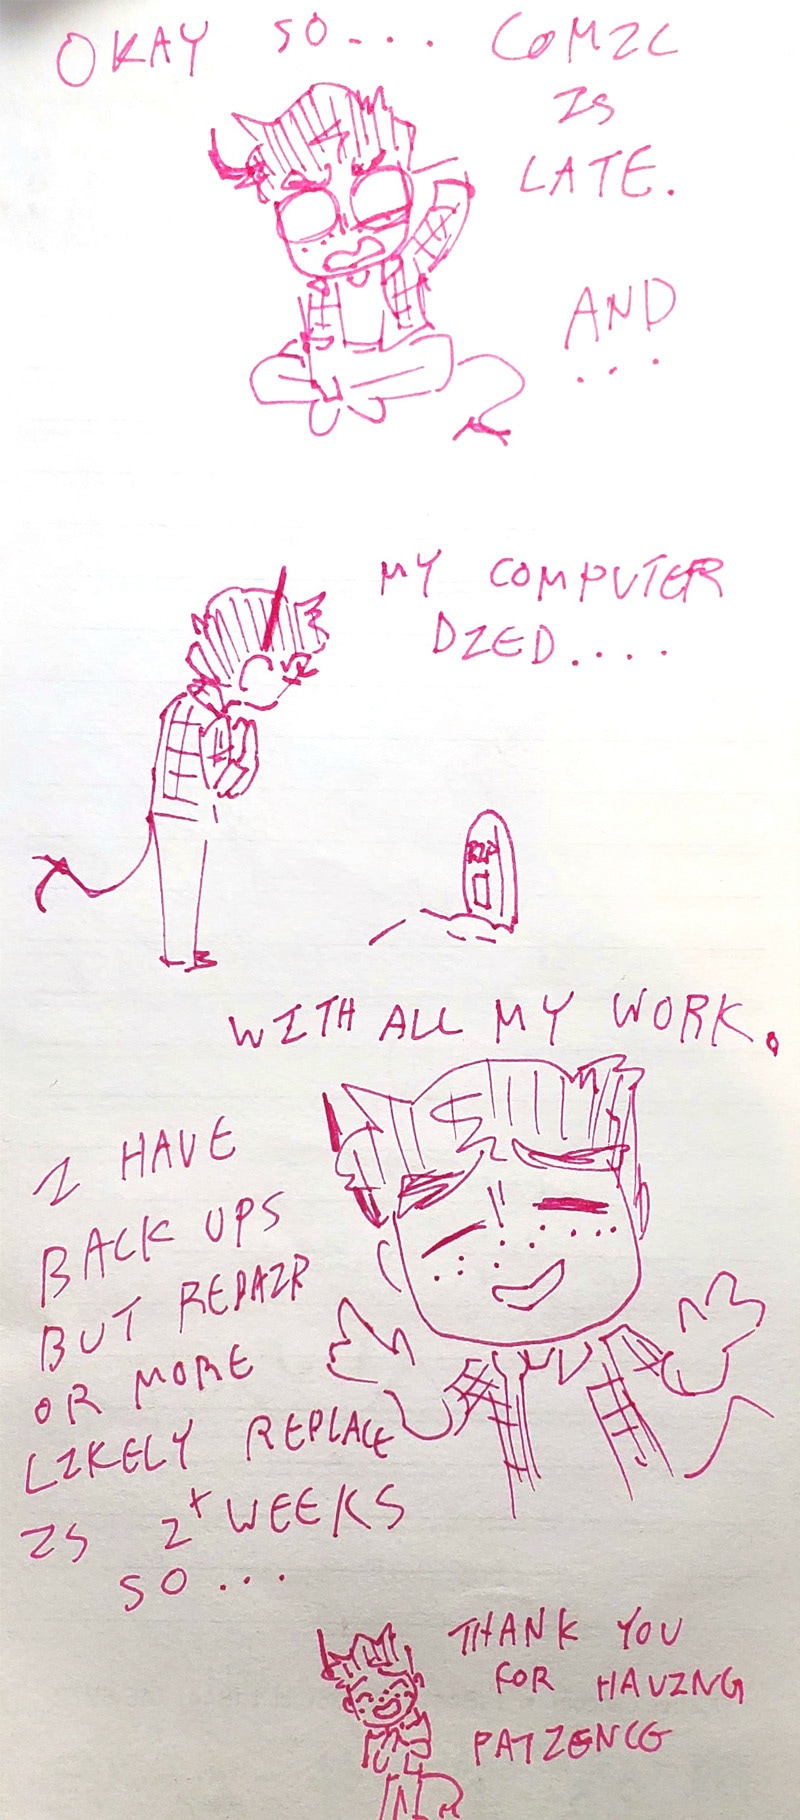 OKAY SO... COMIC
IS
LATE.
AND
...
MY COMPUTER
DIED....
RIP
WITH ALL MY WORK.
I HAVE
BACK UPS
BUT REPAIR
OR MORE
LIKELY REPLACE
IS 2+ WEEKS
SO...
THANK YOU
FOR HAVING
PATIENCE